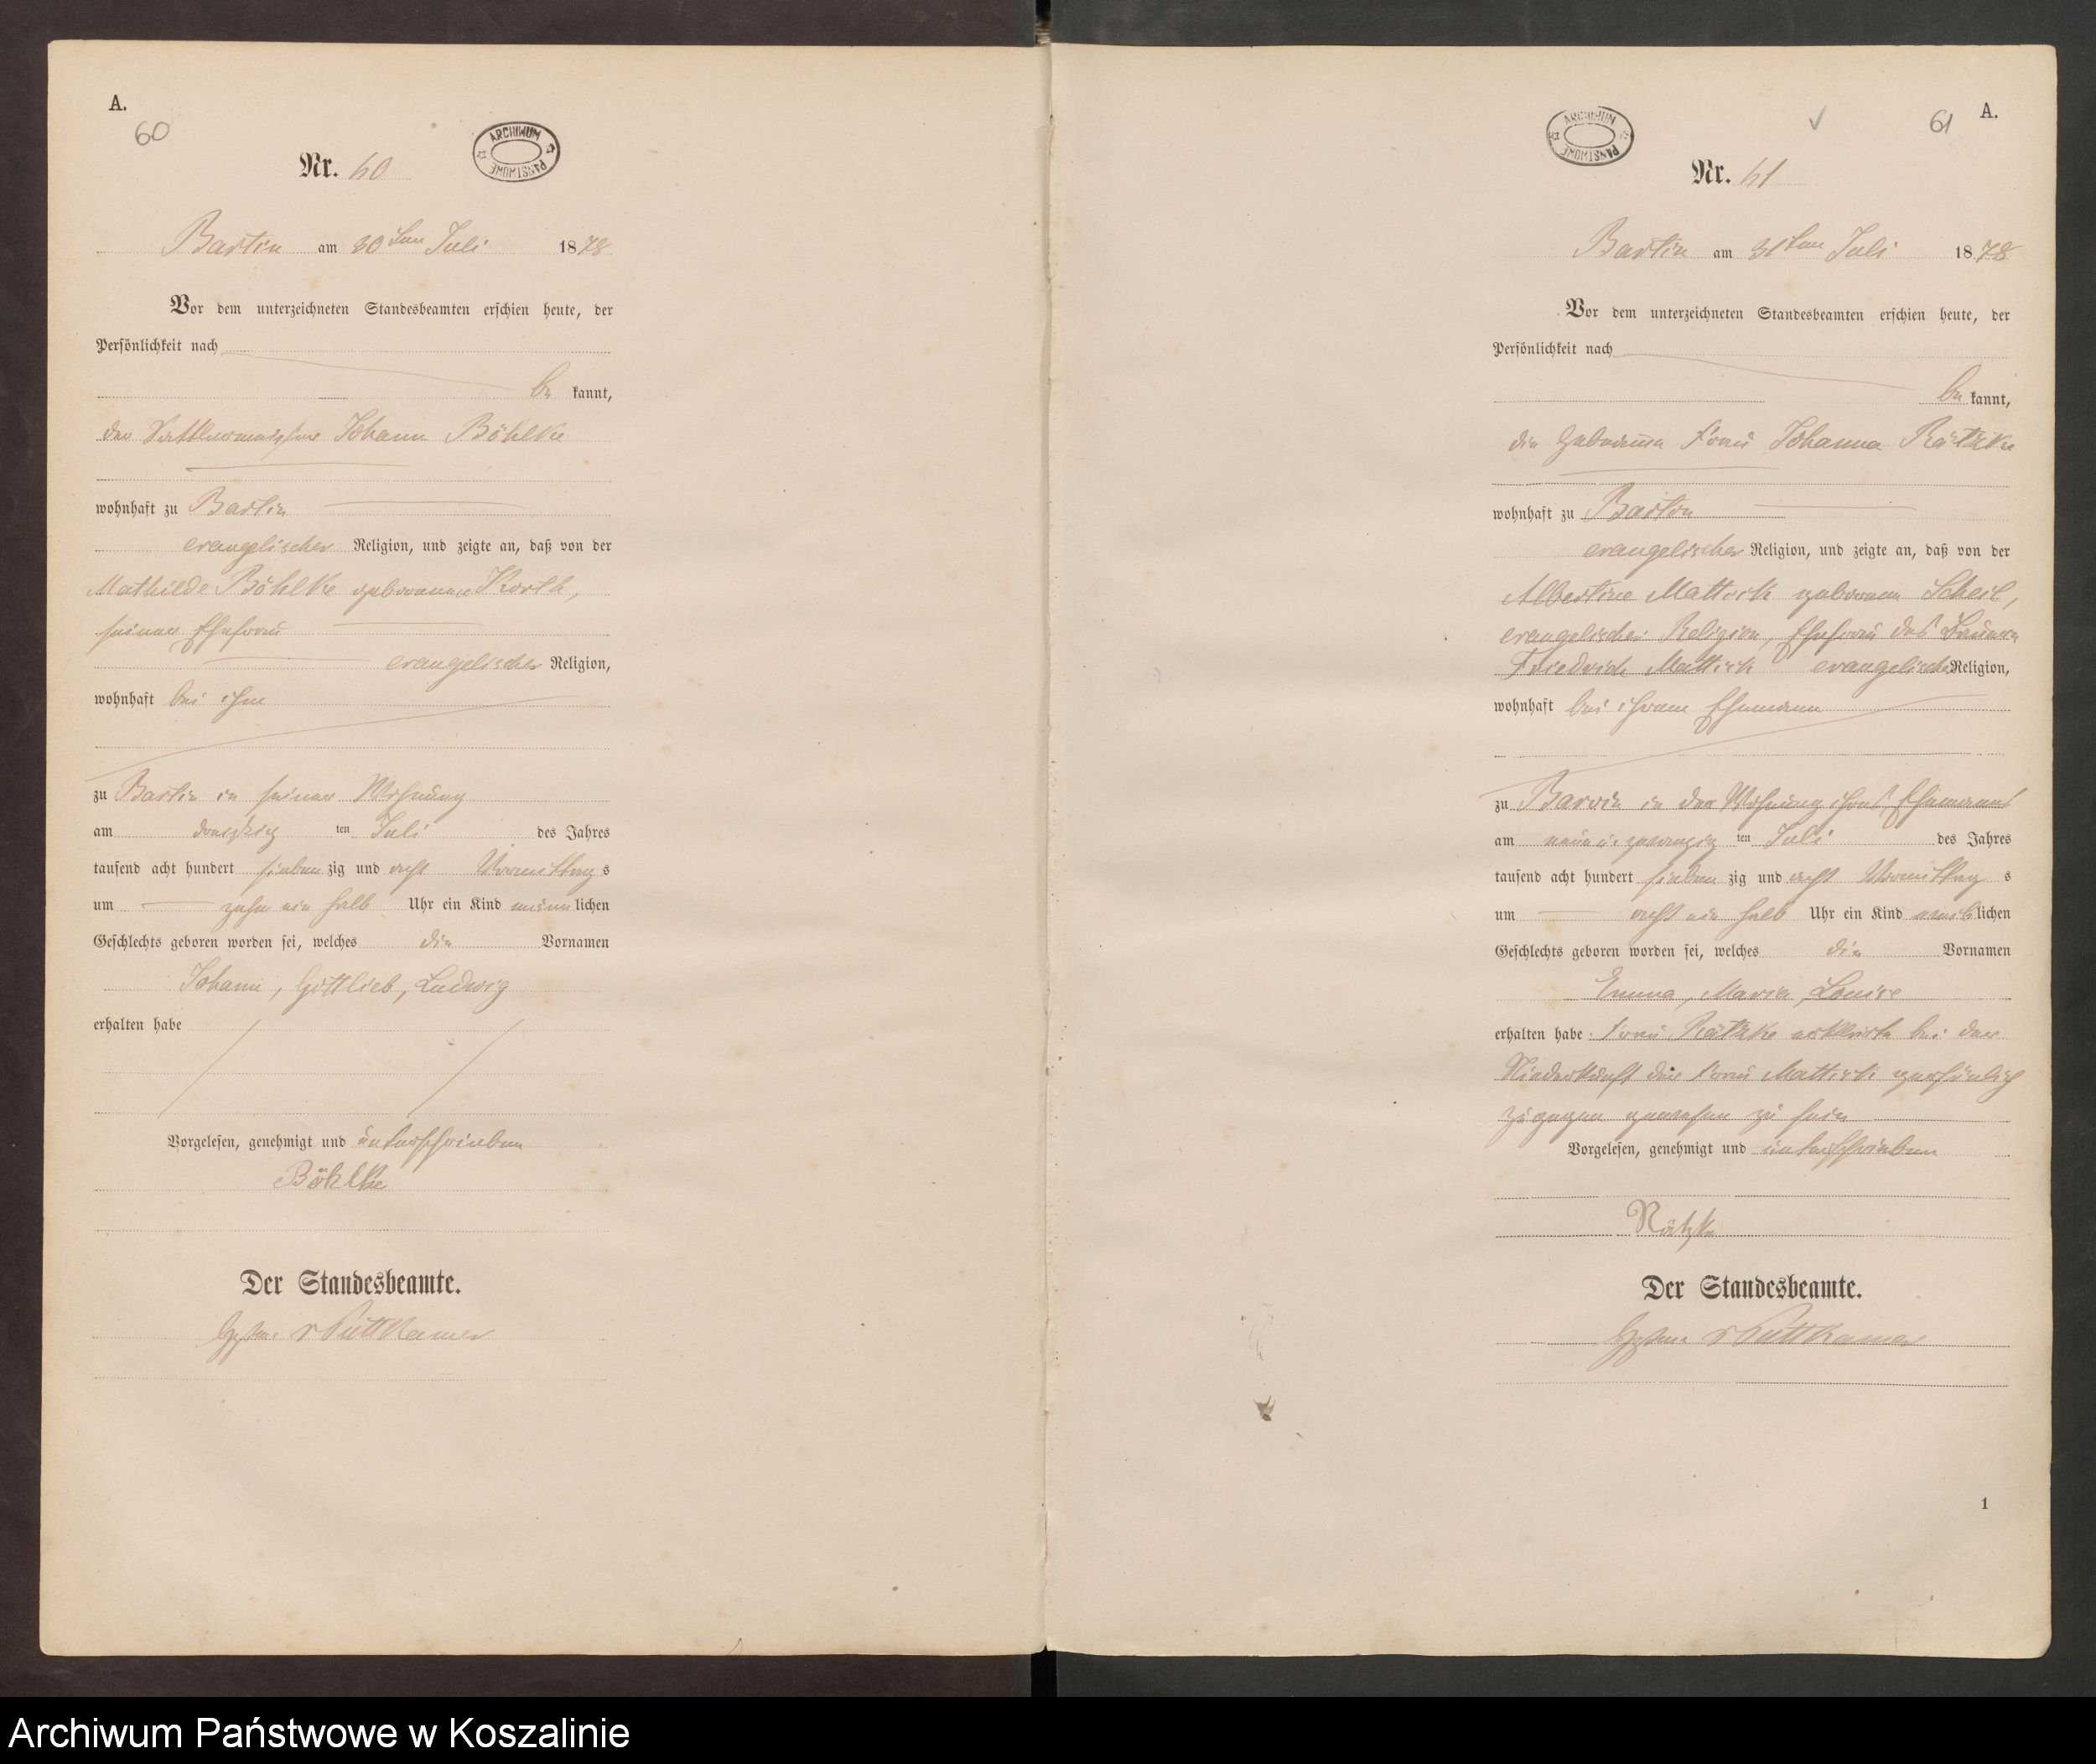 A.
60
ARCHIWUM PAŃSTWOWE
Nr. 60
Bartin am 30ten Juli 1878
Vor dem unterzeichneten Standesbeamten erschien heute, der
Persönlichkeit nach
be kannt,
der Sattlermeister Johann Böhlke
wohnhaft zu Bartin
evangelischer Religion, und zeigte an, daß von der
Mathilde Böhlke geborenen Korth,
seiner Ehefrau
evangelischer Religion,
wohnhaft bei ihm
zu Bartin in seiner Wohnung
am dreißig ten Juli des Jahres
tausend acht hundert sieben zig und acht Vormittag s
um zehn ein halb Uhr ein Kind männ lichen
Geschlechts geboren worden sei, welches die Vornamen
Johann, Gottlieb, Ludwig
erhalten habe
Vorgelesen, genehmigt und unterschrieben
Böhlke
Der Standesbeamte.
v Puttkamer
A.
61
ARCHIWUM PAŃSTWOWE
Nr. 61
Bartin am 31ten Juli 1878
Vor dem unterzeichneten Standesbeamten erschien heute, der
Persönlichkeit nach
be kannt,
die Hebamme Frau Johanna Rätzke
wohnhaft zu Bartin
evangelischer Religion, und zeigte an, daß von der
Albertine Mattick geborenen Scheil,
evangelischer Religion, Ehefrau des Bauern
Friedrich Mattick evangelischer Religion,
wohnhaft bei ihrem Ehemann
zu Barvin in der Wohnung ihres Ehemanns
am neun u. zwanzig ten Juli des Jahres
tausend acht hundert sieben zig und acht Vormittag s
um acht ein halb Uhr ein Kind weib lichen
Geschlechts geboren worden sei, welches die Vornamen
Emma, Maria, Louise
erhalten habe. Frau Rätzke erklärte bei der
Niederkunft der Frau Mattick persönlich
zugegen gewesen zu sein
Vorgelesen, genehmigt und unterschrieben
Rätzke
Der Standesbeamte.
v Puttkamer
1
Archiwum Państwowe w Koszalinie